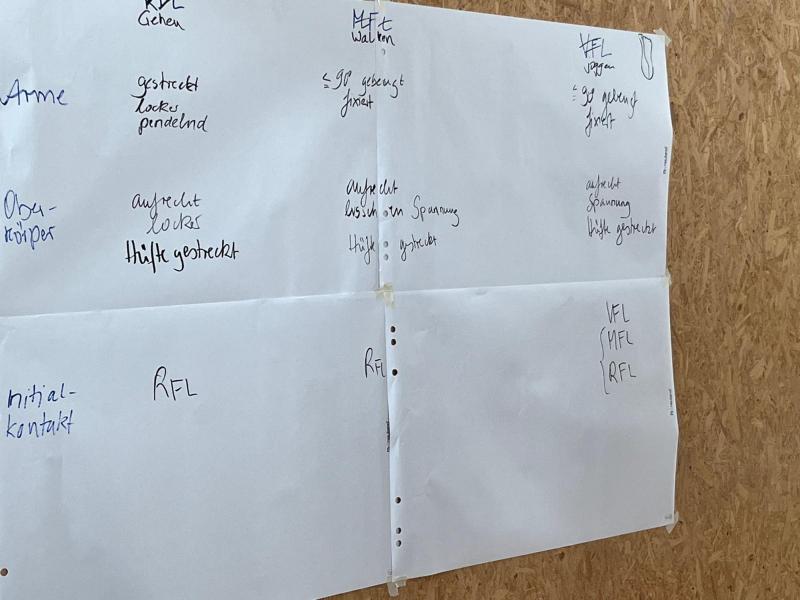 Gehen
Walken
VFL
joggen
Arme
gestreckt
locker
pendelnd
≤ 90 gebeugt
fixiert
≤ 90 gebeugt
fixiert
Ober-
körper
aufrecht
locker
Hüfte gestreckt
aufrecht
bisschen Spannung
Hüfte gestreckt
aufrecht
Spannung
Hüfte gestreckt
Initial-
kontakt
RFL
RFL
VFL
MFL
RFL